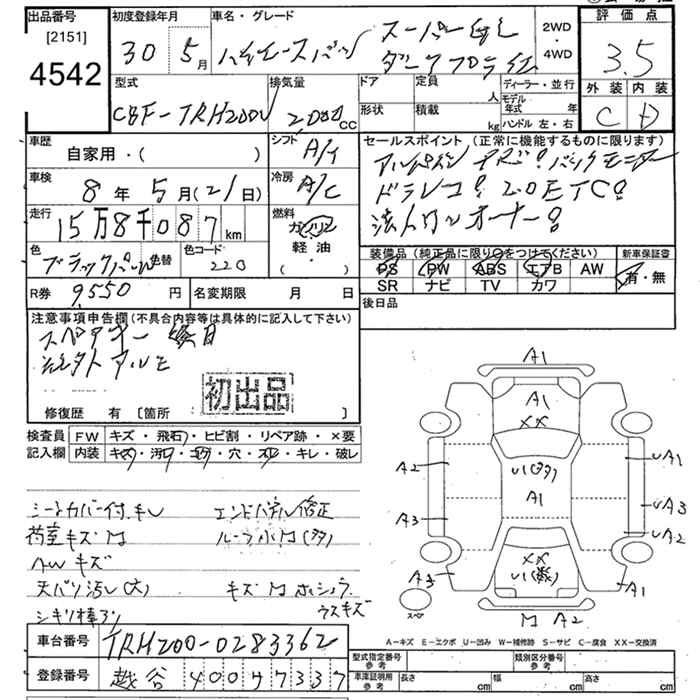 出品番号
[2151]
4542
初度登録年月
30 5月
車名・グレード
ハイエースバン
スーパーGL
ダークプライム
2WD
・
4WD
評価点
3.5
外装 内装
C D
型式
CBF-TRH200V
排気量
2000 CC
ドア
形状
定員
人
積載
kg
ディーラー・並行
モデル年式 年
ハンドル 左・右
車歴
自家用・( )
シフト
A/T
セールスポイント (正常に機能するものに限ります)
アルパインナビ! バックモニター
ドラレコ! 2.0ETC!
法人ワンオーナー!
車検
8年 5月(21日)
冷房
A/C
走行
15万8千087km
燃料
ガソリン
軽油
・( )
色
ブラックパール
色替
色コード
220
装備品 (純正品に限り○をつけてください)
PS PW ABS エアB AW
SR ナビ TV カワ
新車保証書
有・無
R券 9,550円
名変期限 月 日
後日品
注意事項申告欄 (不具合内容等は具体的に記入して下さい)
スペアキー 後日
社外アルミ
初出品
修復歴 有 [箇所 ]
検査員記入欄
FW キズ・飛石・ヒビ割・リペア跡・×要
内装 キズ・汚れ・コゲ・穴・スレ・キレ・破レ
シートカバー付キレ エンドパネル修正
荷室キズM ルーフ小M(多)
AWキズ
天バリ汚レ(大)
シキリ棒アリ ウスキズ
A1
A1
XX
A2
U(多)
UA1
A1
A3
UA3
UA2
XX
U(数)
A3
A1
スペア
M A2
A-キズ E-エクボ U-凹み W-補修跡 S-サビ C-腐食 XX-交換済
車台番号 TRH200-0283362
登録番号 越谷 400サ7337
型式指定番号
参考
類別区分番号
参考
車庫証明用
参考
長さ cm
幅 cm
高さ cm